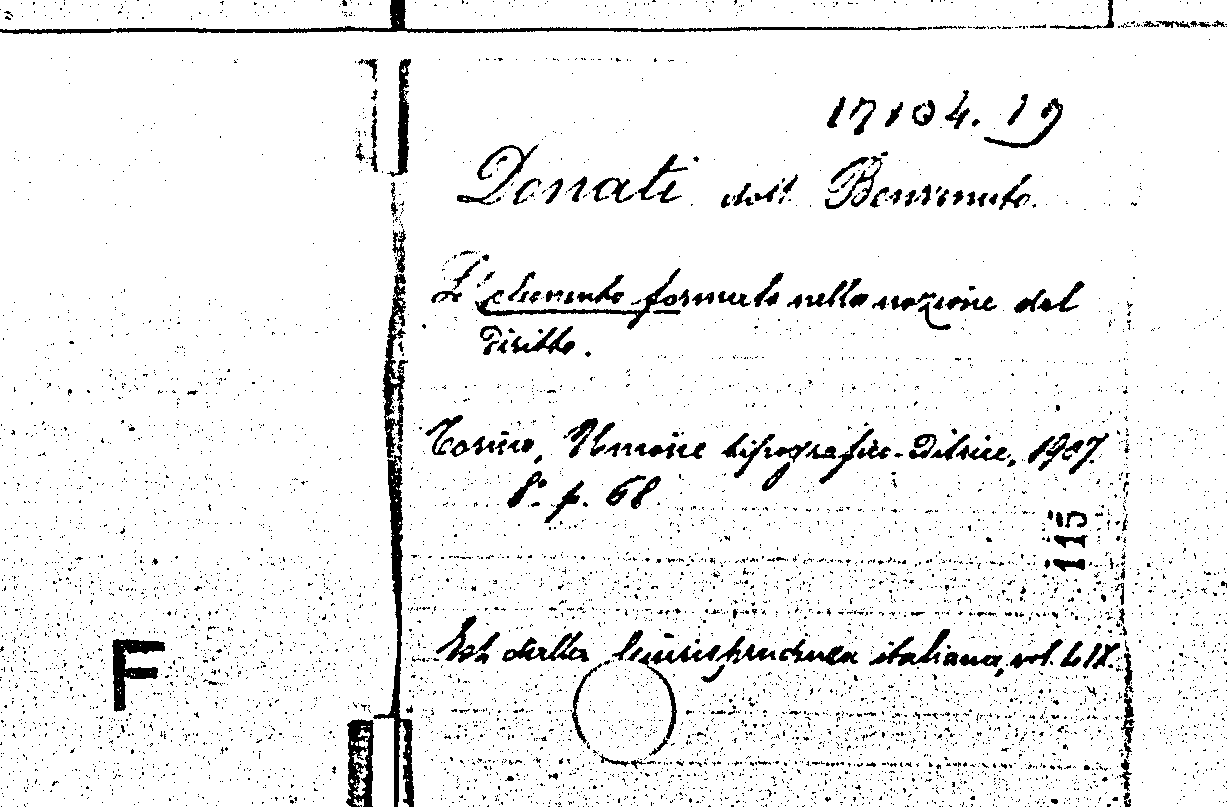 17104. 19
Donati dott Benvenuto.
L'elemento formale nella nozione del
diritto.
Torino, Unione tipografico-editrice, 1907.
8.° p. 68
115
Est. dalla Giurisprudenza italiana, vol. LIX.
F